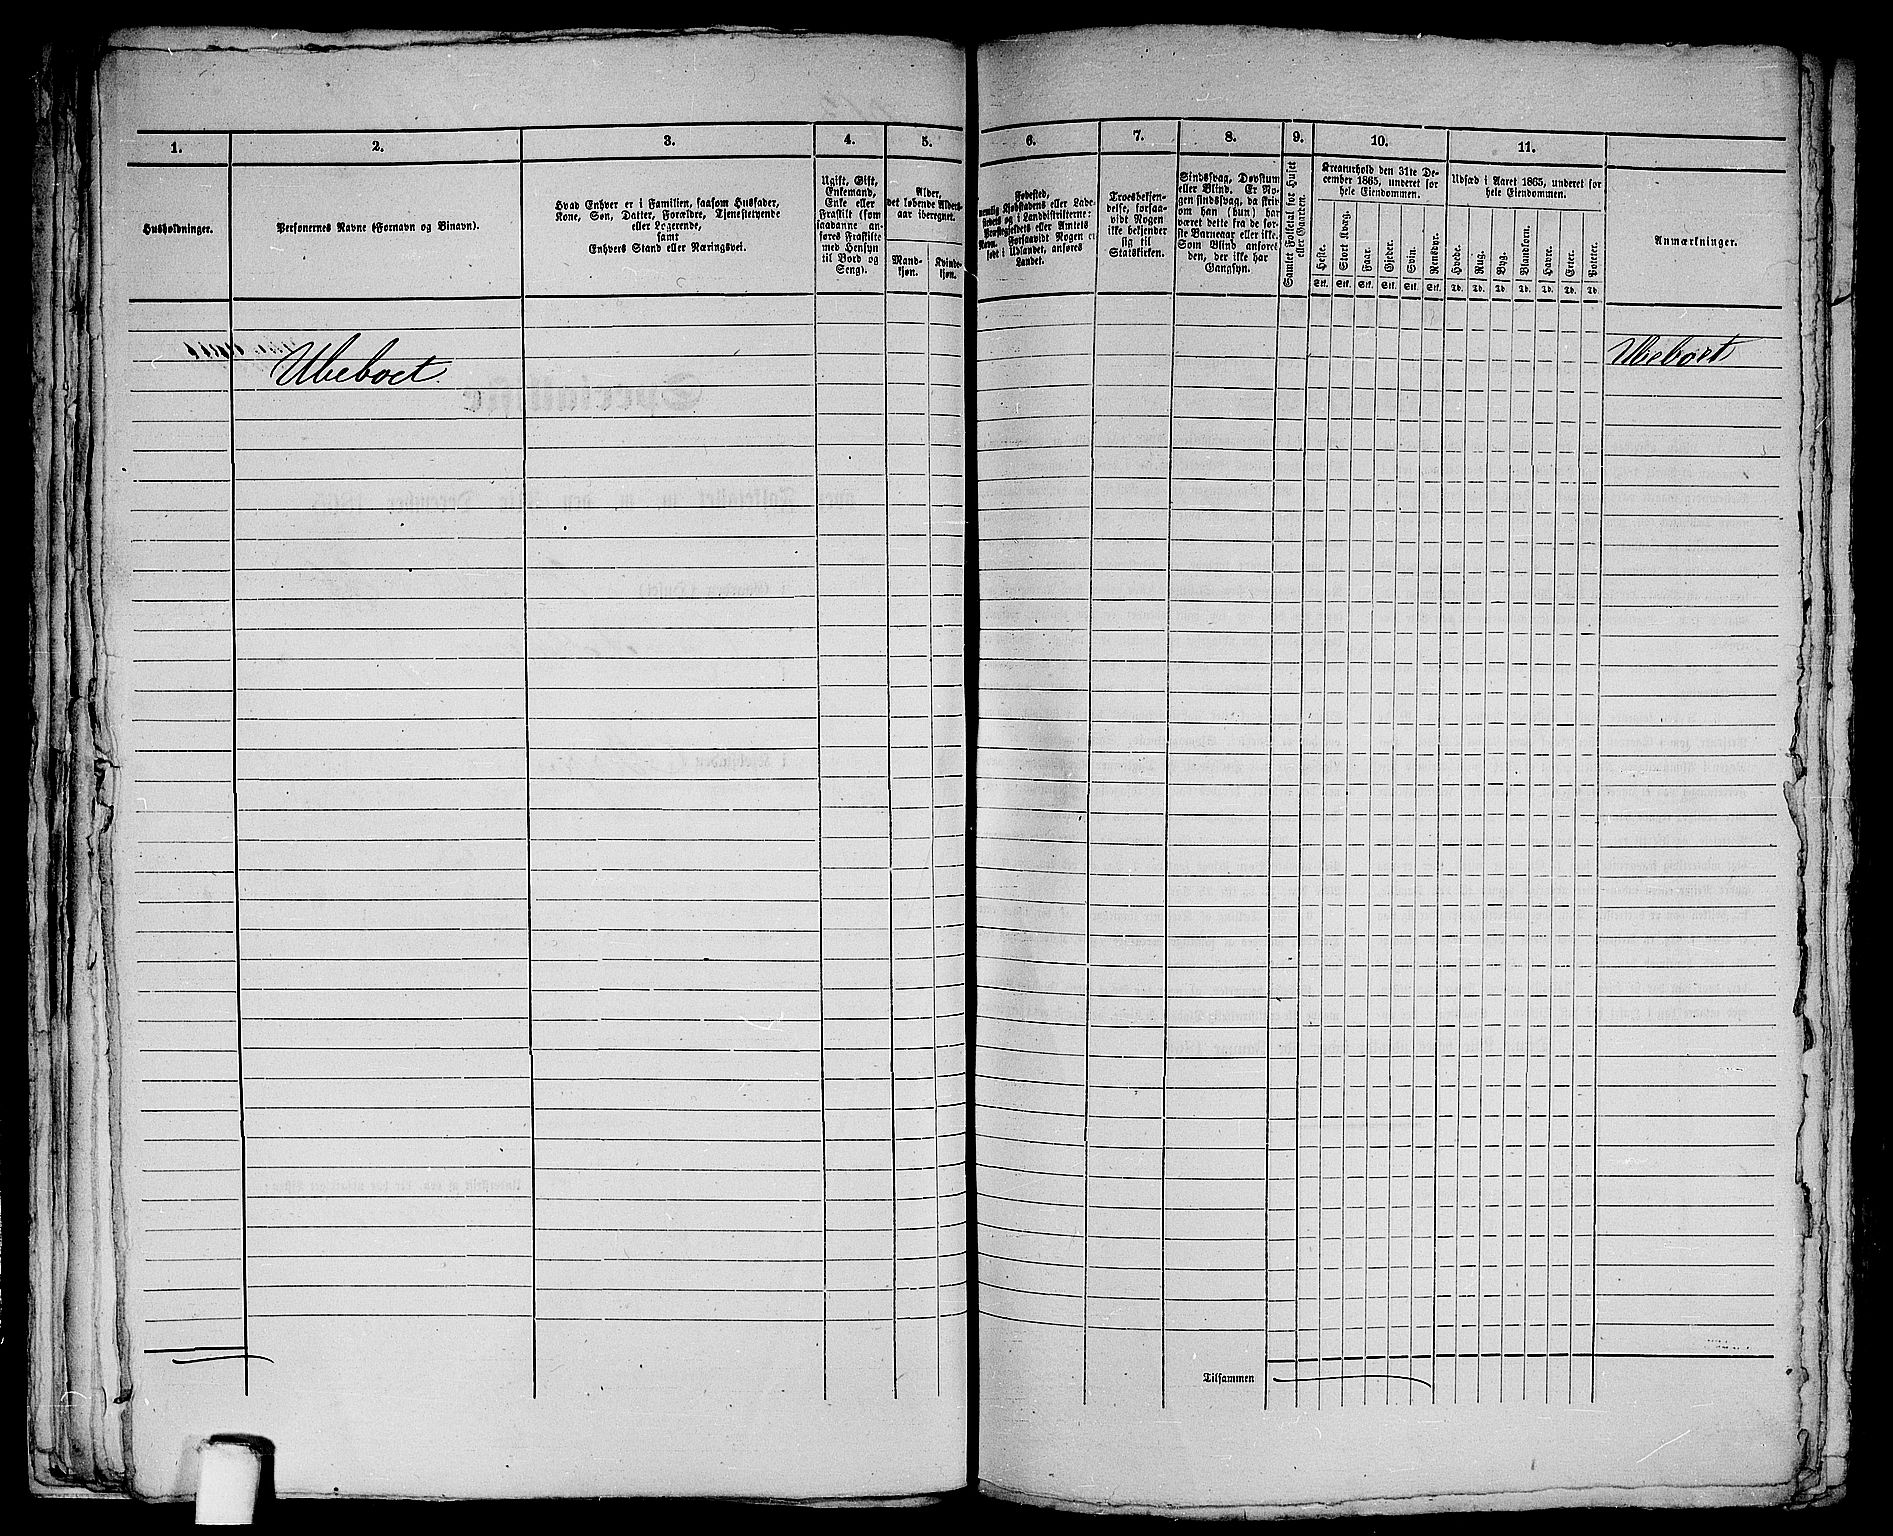 1.
2.
3.
4.
5.
6.
7.
8.
9.
10.
11.
Husholdninger.
Personernes Navne (Fornavn og Binavn).
Hvad Enhver er i Familien, saasom Husfader,
Kone, Søn, Datter, Forældre, Tjenestetyende
eller Logerende,
samt
Enhvers Stand eller Næringsvei.
Ugift, Gift,
Enkemand,
Enke eller
Fraskilt (som
saadanne an-
føres Fraskilte
med Hensyn
til Bord og
Seng).
Alder,
det løbende Alders-
aar iberegnet.
Mand-
kjøn.
Kvinde-
kjøn.
Fødested,
nemlig Kjøbstadens eller Lade-
stedets og i Landdistrikterne:
Præstegjeldets eller Amtets
Navn. Forsaavidt Nogen er
født i Udlandet, anføres
Landet.
Troesbekjen-
delse, forsaa-
vidt Nogen
ikke bekjender
sig til
Statskirken.
Sindssvag, Døvstum
eller Blind. Er No-
gen sindssvag, da skriv
om han (hun) har
været dette fra de før-
ste Barneaar eller ikke.
Som Blind anføres
den, der ikke har
Gangsyn.
Samlet Folketal for Huset
eller Gaarden.
Kreaturhold den 31te De-
cember 1865, underet for
hele Eiendommen.
Heste.
Stort Kvæg.
Faar.
Gjeder.
Svin.
Rensdyr.
Stk. Stk. Stk. Stk. Stk. Stk.
Udsæd i Aaret 1865, underet for
hele Eiendommen.
Hvede.
Rug.
Byg.
Blandkorn.
Havre.
Erter.
Poteter.
Td. Td. Td. Td. Td. Td. Td.
Anmærkninger.
Ubeboet
Ubeboet
Tilsammen